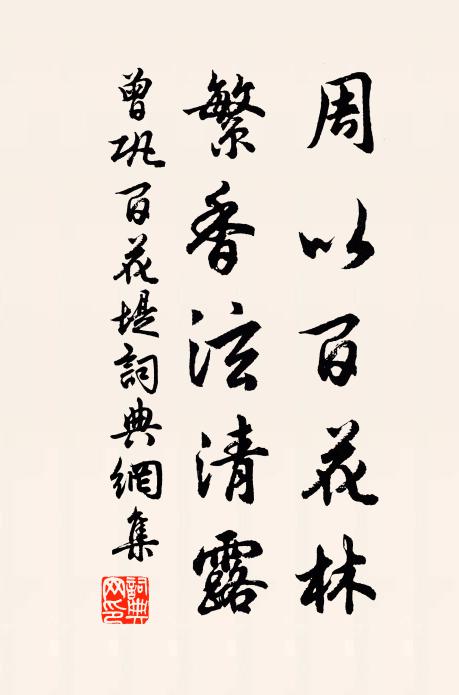 周以百花林
繁香泫清露
曾巩百花堤詞典網集
詞典網印